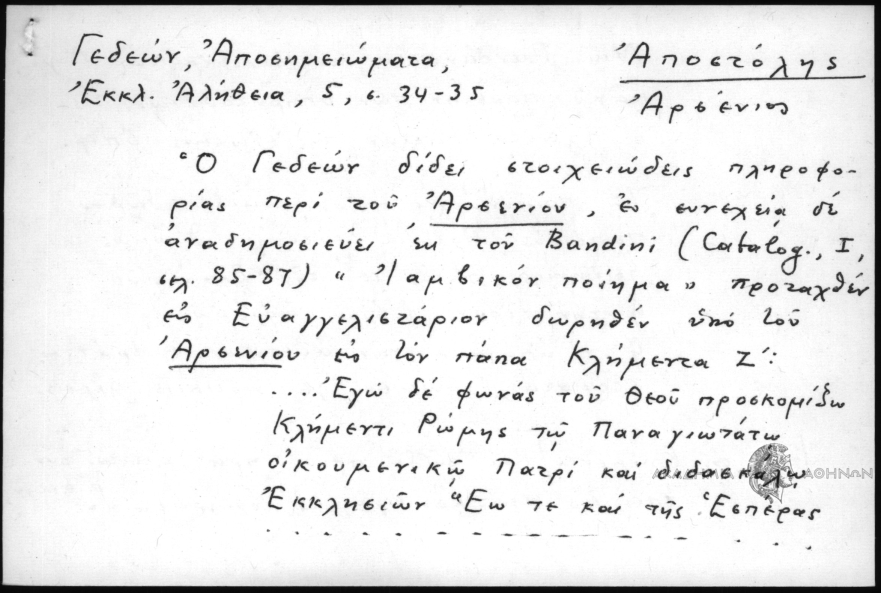 Γεδεών, Ἀποσημειώματα,
Ἐκκλ. Ἀλήθεια, 5, σ. 34-35
Ἀποστόλης
Ἀρσένιος
Ὁ Γεδεών δίδει στοιχειώδεις πληροφο-
ρίας περί τοῦ Ἀρσενίου, ἐν συνεχείᾳ δέ
ἀναδημοσιεύει ἐκ τοῦ Bandini (Catalog., I,
σελ. 85-87) "Ἰαμβικόν ποίημα" προταχθέν
εἰς Εὐαγγελιστάριον δωρηθέν ὑπό τοῦ
Ἀρσενίου εἰς τόν πάπα Κλήμεντα Ζ΄:
....Ἐγώ δέ φωνάς τοῦ Θεοῦ προσκομίζω
Κλήμεντι Ρώμης τῷ Παναγιωτάτῳ
οἰκουμενικῷ Πατρί καί διδασκάλῳ
Ἐκκλησιῶν Ἕω τε καί τῆς Ἑσπέρας
. . . . . . . . . . . . . . .
ΑΚΑΔΗΜΙΑ ΑΘΗΝΩΝ